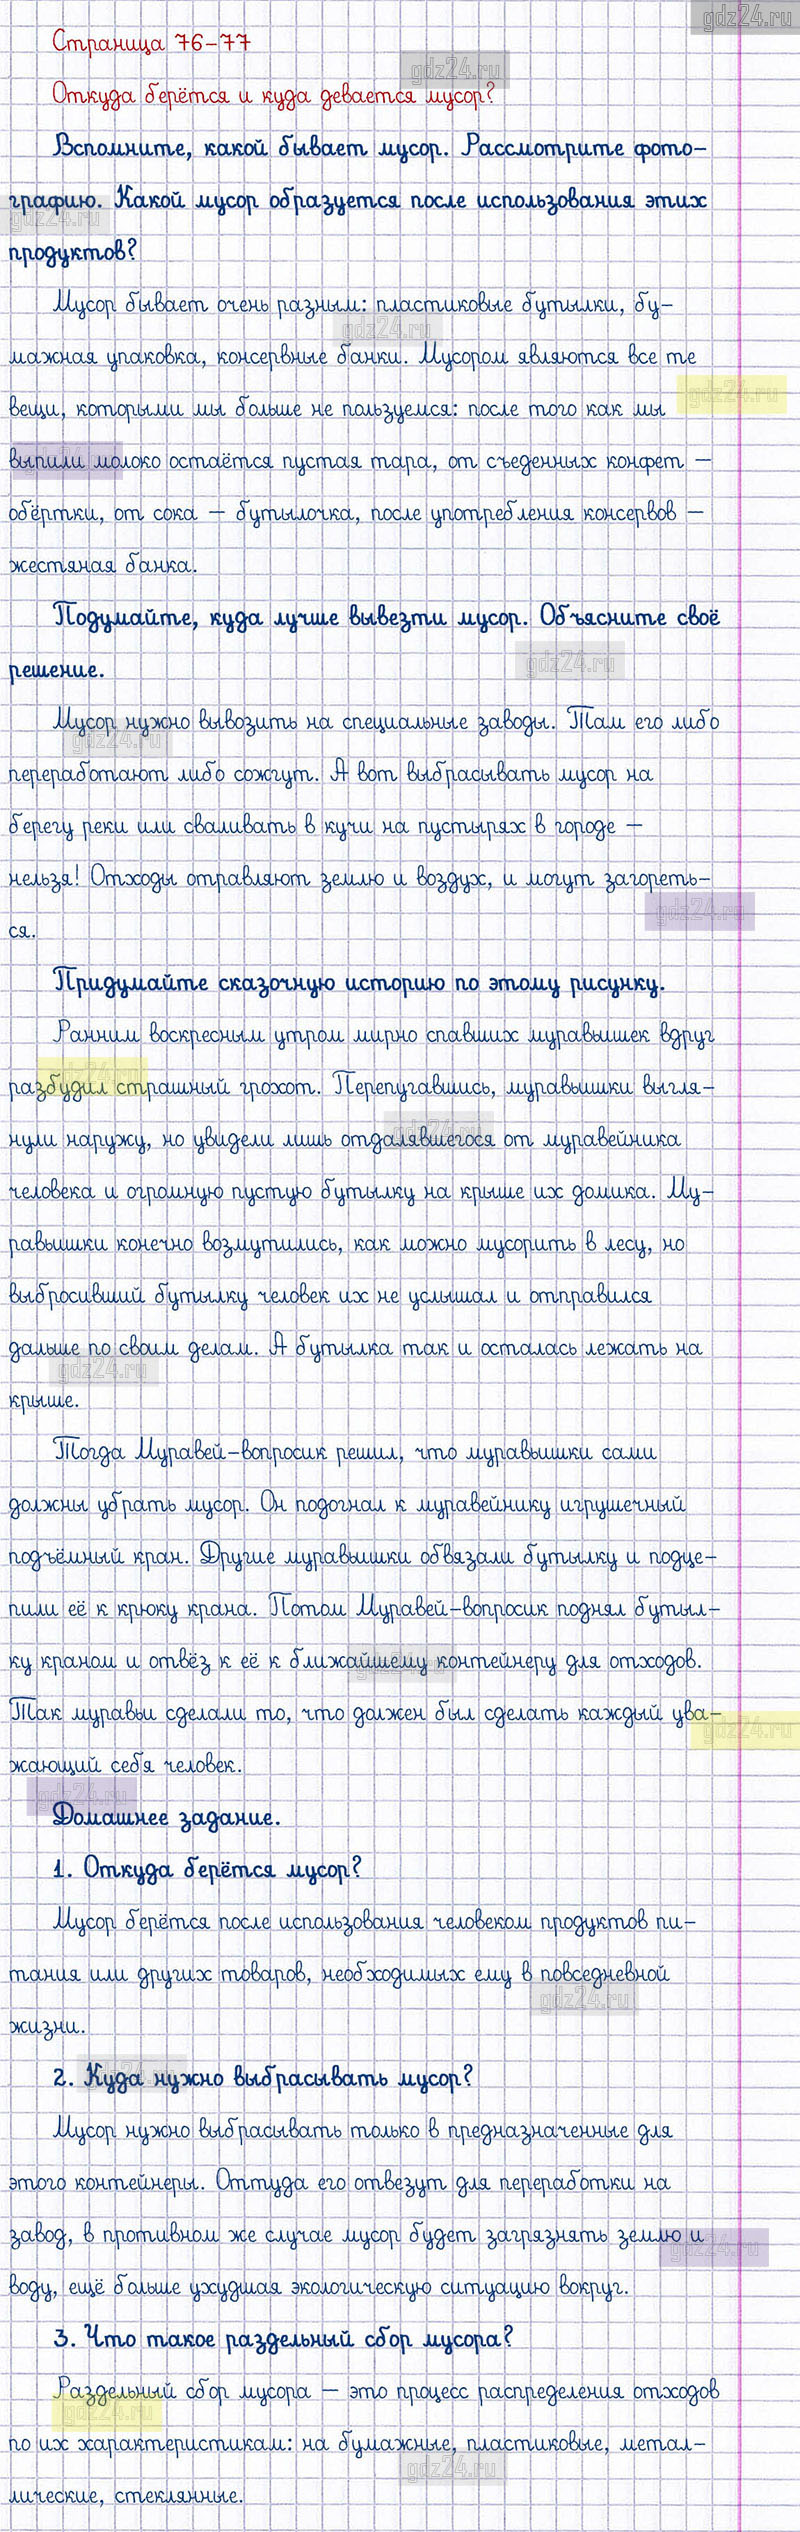 gdz24.ru
Страница 76-77
gdz24.ru
Откуда берётся и куда девается мусор?
Вспомните, какой бывает мусор. Рассмотрите фото-
графию. Какой мусор образуется после использования этих
gdz24.ru
продуктов?
Мусор бывает очень разным: пластиковые бутылки, бу-
gdz24.ru
мажная упаковка, консервные банки. Мусором являются все те
gdz24.ru
вещи, которыми мы больше не пользуемся: после того как мы
выпили молоко остаётся пустая тара, от съеденных конфет –
gdz24.ru
обёртки, от сока – бутылочка, после употребления консервов –
жестяная банка.
Подумайте, куда лучше вывезти мусор. Объясните своё
решение.
gdz24.ru
Мусор нужно вывозить на специальные заводы. Там его либо
gdz24.ru
переработают либо сожгут. А вот выбрасывать мусор на
берегу реки или сваливать в кучи на пустырях в городе –
нельзя! Отходы отравляют землю и воздух, и могут загореть-
gdz24.ru
ся.
Придумайте сказочную историю по этому рисунку.
Ранним воскресным утром мирно спавших муравьишек вдруг
gdz24.ru
разбудил страшный грохот. Перепугавшись, муравьишки выгля-
gdz24.ru
нули наружу, но увидели лишь отдалявшегося от муравейника
человека и огромную пустую бутылку на крыше их домика. Му-
равьишки конечно возмутились, как можно мусорить в лесу, но
выбросивший бутылку человек их не услышал и отправился
дальше по своим делам. А бутылка так и осталась лежать на
gdz24.ru
крыше.
Тогда Муравей-вопросик решил, что муравьишки сами
должны убрать мусор. Он подогнал к муравейнику игрушечный
подъёмный кран. Другие муравьишки обвязали бутылку и подце-
пили её к крюку крана. Потом Муравей-вопросик поднял бутыл-
ку краном и отвёз к её к ближайшему контейнеру для отходов.
gdz24.ru
Так муравьи сделали то, что должен был сделать каждый ува-
gdz24.ru
жающий себя человек.
gdz24.ru
Домашнее задание.
1. Откуда берётся мусор?
Мусор берётся после использования человеком продуктов пи-
тания или других товаров, необходимых ему в повседневной
gdz24.ru
жизни.
2. Куда нужно выбрасывать мусор?
gdz24.ru
Мусор нужно выбрасывать только в предназначенные для
этого контейнеры. Оттуда его отвезут для переработки на
завод, в противном же случае мусор будет загрязнять землю и
gdz24.ru
воду, ещё больше ухудшая экологическую ситуацию вокруг.
3. Что такое раздельный сбор мусора?
Раздельный сбор мусора – это процесс распределения отходов
gdz24.ru
по их характеристикам: на бумажные, пластиковые, метал-
gdz24.ru
лические, стеклянные.